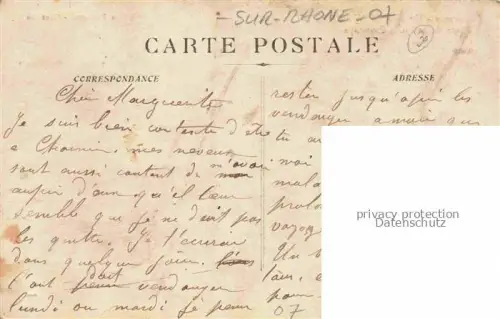 - SUR-RHONE - 07
30
CARTE POSTALE
CORRESPONDANCE
ADRESSE
Chère Marguerite
Je suis bien contente d'être
a mes neveux
sont aussi content de m'avoir
auprès d'eux qu'il leur
semble que je ne doit pas
les quitter. Je t'écrirai
dans quelque jour.
doit vendanger
lundi ou mardi je pense
rester jusqu'après les
vendanges
tu
moi
mala
prolon
voyag
Un b
pour
07
privacy protection
Datenschutz